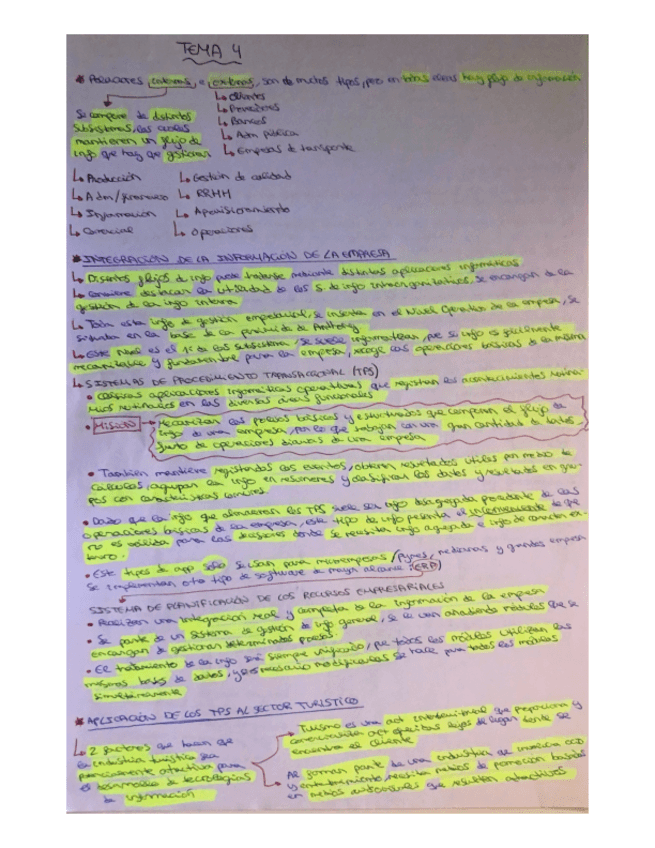 TEMA 4
* Relaciones internas, e externas, son de muchos tipos, pero en todas ellas hay flujo de información
↳ Clientes
↳ Proveedores
↳ Bancos
↳ Adm pública
↳ Empresas de transporte
Se compone de distintos
subsistemas, los cuales
mantienen un flujo de
info que hay que gestionar
↳ Producción ↳ Gestión de calidad
↳ Adm/financiero ↳ RRHH
↳ Información ↳ Aprovisionamiento
↳ Comercial ↳ Operaciones
* INTEGRACIÓN DE LA INFORMACIÓN DE LA EMPRESA
↳ Distintos flujos de info puede tratarse mediante distintas aplicaciones informáticas
↳ Conviene destacar la utilidad de los S. de info se encargan de la
gestión de la info interna
↳ Toda esta info de gestión empresarial, se inserta en el Nivel Operativo de la empresa, se
situada en la base de la pirámide de Anthony
↳ Este nivel es el 1º de los subsistema, se suele informatizar, pues su info es fácilmente
mecanizable y fundamental para la empresa, recoge las operaciones básicas de la misma
↳ SISTEMAS DE PROCEDIMIENTO TRANSACCIONAL (TPS)
• Clásicas aplicaciones informáticas operativas que registran los acontecimientos
rutinarios en las diversas áreas funcionales
• MISIÓN → Mecanizan los procesos básicos y estructurados que componen el flujo de
info de una empresa, por lo que trabajan con una gran cantidad de datos,
fruto de operaciones diarias de una empresa
• También mantiene registrados los eventos, obtienen resultados útiles por medio de
cálculos, agrupan la info en resúmenes y clasifican los datos y resultados en gru-
pos con características comunes.
• Dado que la info que almacenan los TPS suele ser info disgregada procedente de las
operaciones básicas de la empresa, este tipo de info presenta el inconveniente de que
no es válida para las decisiones donde se necesita info agregada e info de carácter ex-
terno.
• Este tipos de app solo se usan para microempresas / pymes, medianas y grandes empresa
se implementan otro tipo de software de mayor alcance: (ERP)
SISTEMA DE PLANIFICACIÓN DE LOS RECURSOS EMPRESARIALES
• Realizan una integración real y completa de la información de la empresa
• Se parte de un sistema de gestión de info general, se le van añadiendo módulos que se
encargan de gestionar determinados procesos.
• El tratamiento de la info será siempre unificado, pues todos los módulos utilizan las
mismas bases de datos, y las modificaciones se hace para todos los módulos
simultáneamente
* APLICACIÓN DE LOS TPS AL SECTOR TURÍSTICO
↳ 2 factores que hacen que
la industria turística sea
potencialmente atractiva para
el desarrollo de tecnologías
de información
→ Turismo es una act que promociona y
comercializa act ofrecidas lejos de lugar donde se
encuentra el cliente
→ Al formar parte de una industria que ocio
y entretenimiento, necesita medios de promoción basados
en medios audiovisuales que resulten atractivos